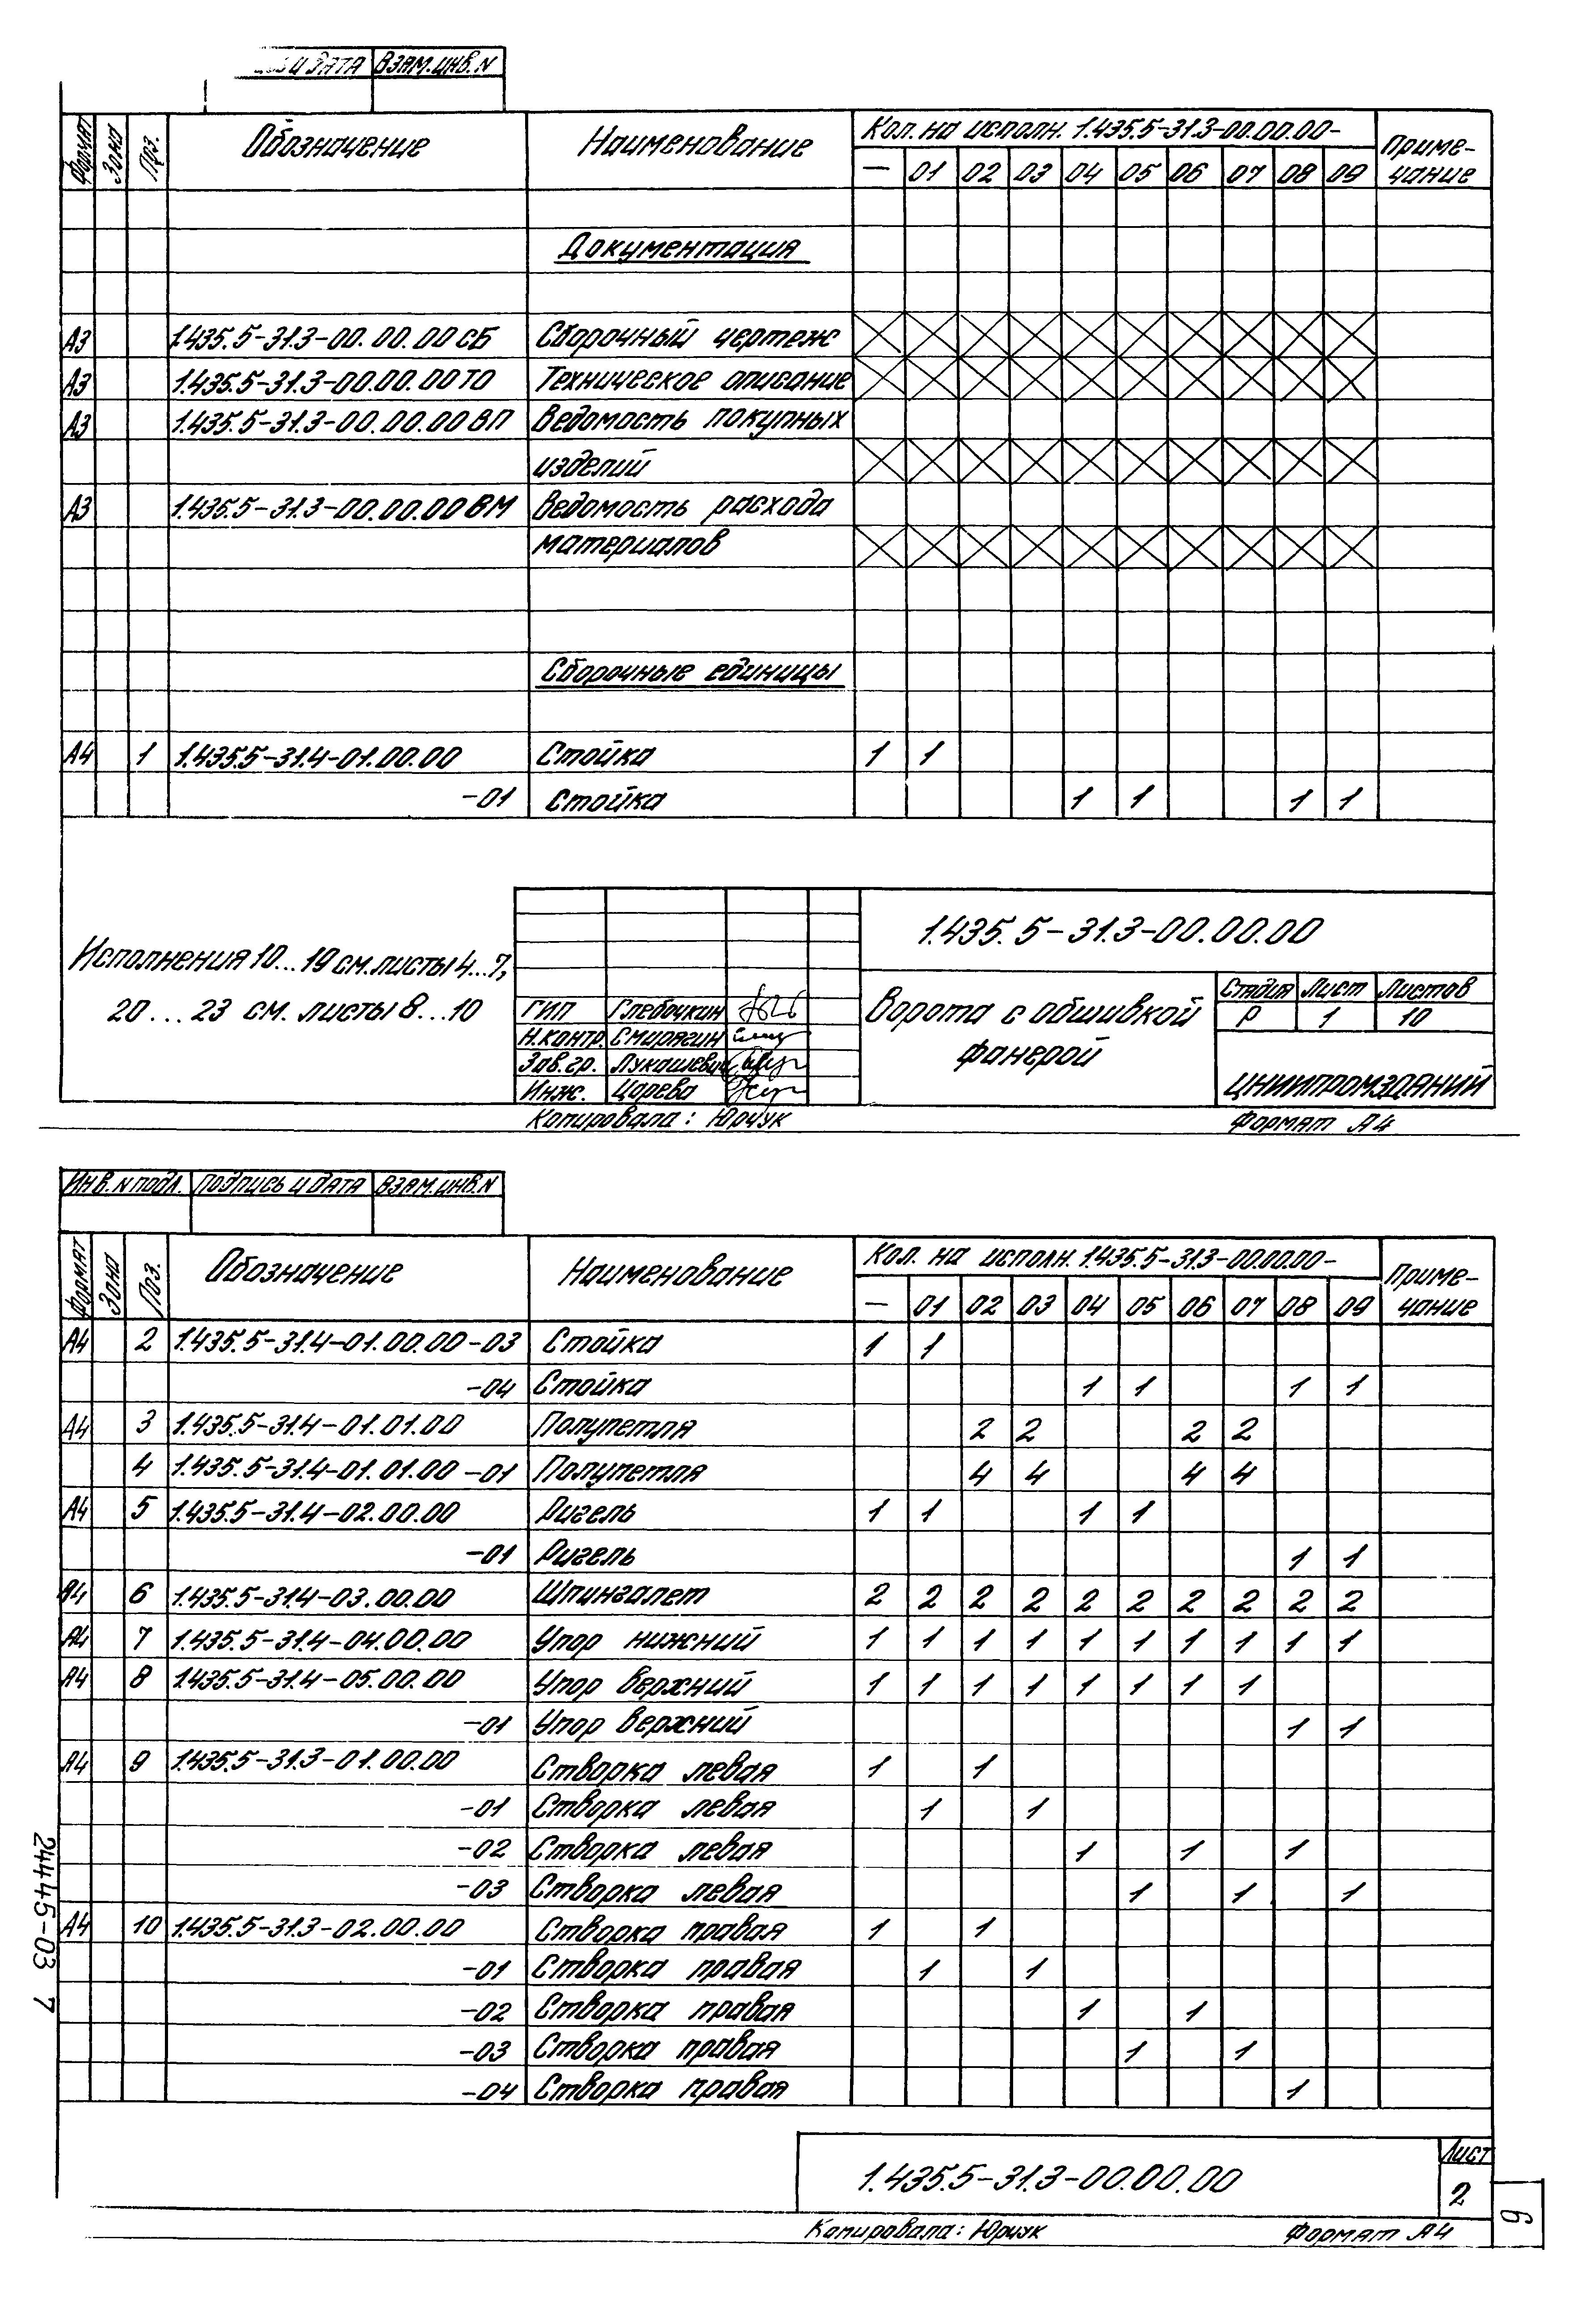 и дата Взам.инв.N
Формат Зона Поз. Обозначение Наименование Кол. на исполн. 1.435.5-31.3-00.00.00- Приме-
— 01 02 03 04 05 06 07 08 09 чание
Документация
А3 1.435.5-31.3-00.00.00 СБ Сборочный чертеж
А3 1.435.5-31.3-00.00.00 ТО Техническое описание
А3 1.435.5-31.3-00.00.00 ВП Ведомость покупных
изделий
А3 1.435.5-31.3-00.00.00 ВМ Ведомость расхода
материалов
Сборочные единицы
А4 1 1.435.5-31.4-01.00.00 Стойка 1 1
-01 Стойка 1 1 1 1
Исполнения 10...19 см. листы 4...7,
20...23 см. листы 8...10
1.435.5-31.3-00.00.00
Ворота с обшивкой
фанерой
Стадия Лист Листов
Р 1 10
ЦНИИПРОМЗДАНИЙ
ГИП Глебочкин
Н.контр. Смирягин
Зав.гр. Лукашевич
Инж. Царева
Копировала: Юрчук Формат А4
Инв.N подл. Подпись и дата Взам.инв.N
Формат Зона Поз. Обозначение Наименование Кол. на исполн. 1.435.5-31.3-00.00.00- Приме-
— 01 02 03 04 05 06 07 08 09 чание
А4 2 1.435.5-31.4-01.00.00-03 Стойка 1 1
-04 Стойка 1 1 1 1
А4 3 1.435.5-31.4-01.01.00 Полупетля 2 2 2 2
4 1.435.5-31.4-01.01.00-01 Полупетля 4 4 4 4
А4 5 1.435.5-31.4-02.00.00 Ригель 1 1 1 1
-01 Ригель 1 1
А4 6 1.435.5-31.4-03.00.00 Шпингалет 2 2 2 2 2 2 2 2 2 2
А4 7 1.435.5-31.4-04.00.00 Упор нижний 1 1 1 1 1 1 1 1 1 1
А4 8 1.435.5-31.4-05.00.00 Упор верхний 1 1 1 1 1 1 1 1
-01 Упор верхний 1 1
А4 9 1.435.5-31.3-01.00.00 Створка левая 1 1
-01 Створка левая 1 1
-02 Створка левая 1 1 1
-03 Створка левая 1 1 1
А4 10 1.435.5-31.3-02.00.00 Створка правая 1 1
-01 Створка правая 1 1
-02 Створка правая 1 1
-03 Створка правая 1 1
-04 Створка правая 1
24445-03 7
1.435.5-31.3-00.00.00 Лист
2
Копировала: Юрчук Формат А4
6